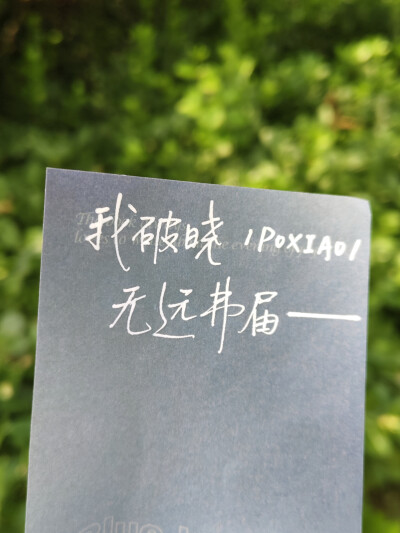 我破晓 /POXIAO/
无远弗届——